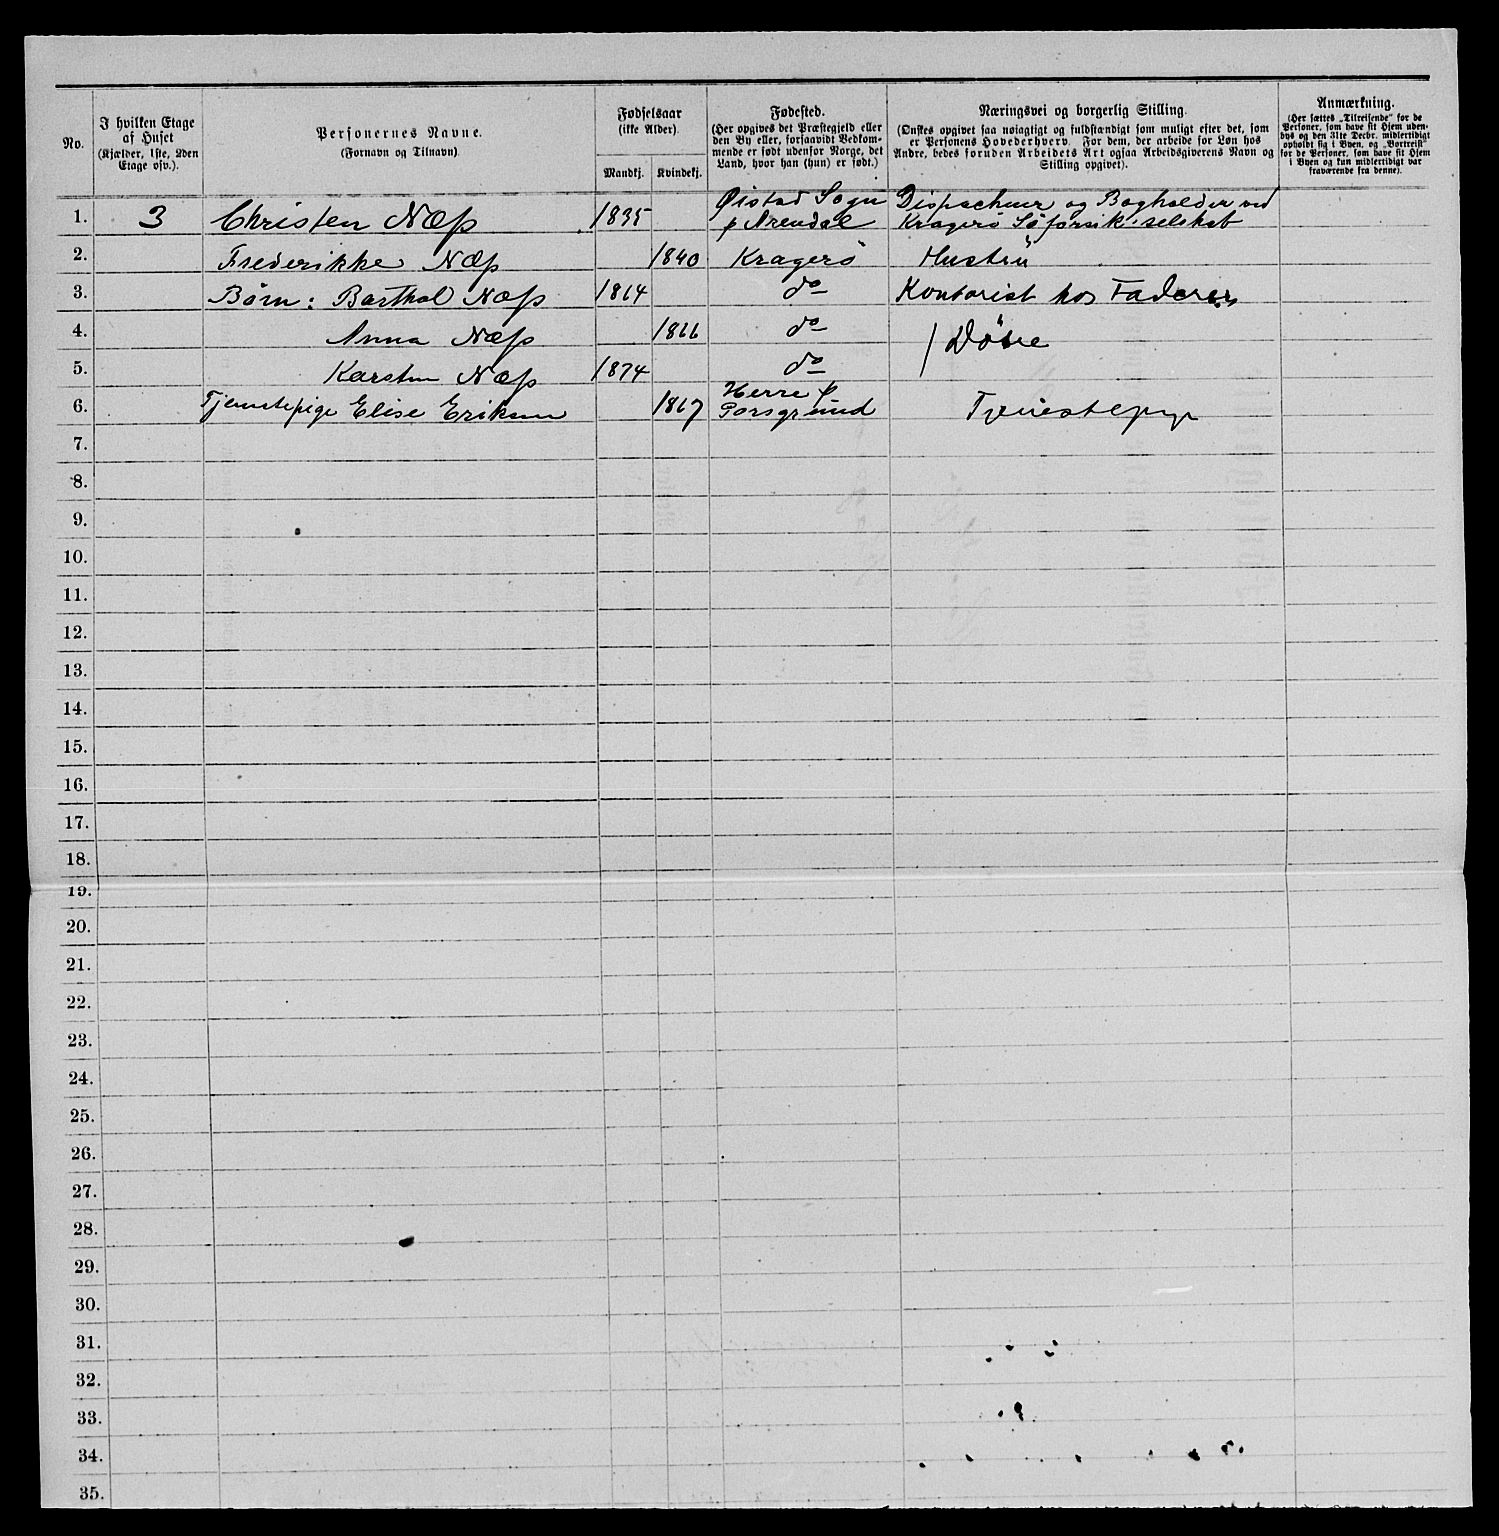 No.
I hvilken Etage
af Huset
(Kjælder, 1ste, 2den
Etage osv.).
Personernes Navne.
(Fornavn og Tilnavn)
Fødselsaar
(ikke Alder)
Mandkj.
Kvindekj.
Fødested.
(Her opgives det Præstegjeld eller
den By eller, forsaavidt Vedkom-
mende er født udenfor Norge, det
Land, hvor han (hun) er født.)
Næringsvei og borgerlig Stilling.
(Ønskes opgivet saa nøiagtigt og fuldstændigt som muligt efter det, som
er Personens Hovederhverv. For dem, der arbeide for Løn hos
Andre, bedes foruden Arbeidets Art ogsaa Arbeidsgiverens Navn og
Stilling opgivet).
Anmærkning.
(Her sættes „Tilreisende“ for de
Personer, som have sit Hjem uden-
bys og den 31te Decbr. midlertidigt
opholdt sig i Byen, og „Bortreist“
for de Personer, som have sit Hjem
i Byen og kun midlertidigt var
fraværende fra denne).
1. 3 Christen Næss 1835 Øistad Sogn p Arendal Dispacheur og Bogholder ved Kragerö Söforsik. selskab
2. Frederikke Næss 1840 Kragerö Hustru
3. Børn: Barthol Næss 1864 do Kontorist hos Faderen
4. Anna Næss 1866 do
5. Karsten Næss 1874 do
6. Tjenestepige Elise Eriksen 1867 Herre p Porsgrund Tjenestepige
7.
8.
9.
10.
11.
12.
13.
14.
15.
16.
17.
18.
19.
20.
21.
22.
23.
24.
25.
26.
27.
28.
29.
30.
31.
32.
33.
34.
35.